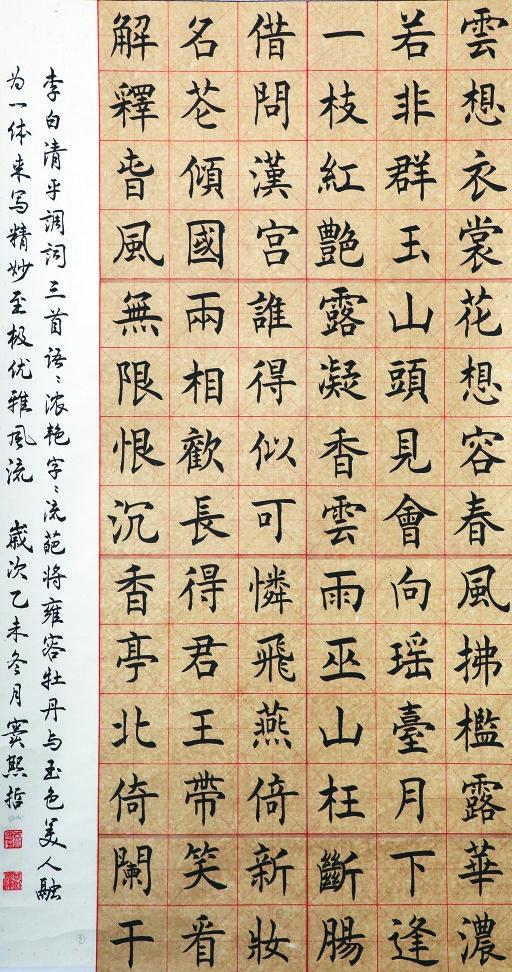 雲想衣裳花想容春風拂檻露華濃
若非群玉山頭見會向瑶臺月下逢
一枝紅艷露凝香雲雨巫山枉斷腸
借問漢宫誰得似可憐飛燕倚新妝
名花傾國兩相歡長得君王帶笑看
解釋旾風無限恨沉香亭北倚闌干
李白清平調词三首语〻浓艳字〻流葩将雍容牡丹与玉色美人融
为一体来写精妙至极优雅风流 歲次乙未冬月窦熙哲